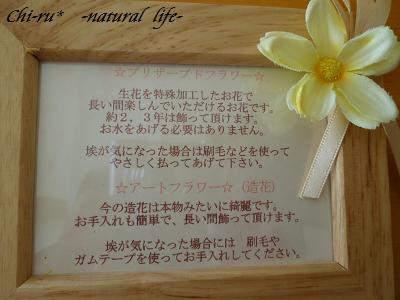 Chi-ru*  -natural life-
☆プリザーブドフラワー☆
生花を特殊加工したお花で
長い間楽しんでいただけるお花です。
約２，３年は飾って頂けます。
お水をあげる必要はありません。
埃が気になった場合は刷毛などを使って
やさしく払ってあげて下さい。
☆アートフラワー☆（造花）
今の造花は本物みたいに綺麗です。
お手入れも簡単で、長い間飾って頂けます。
埃が気になった場合には　刷毛や
ガムテープを使ってお手入れしてください。